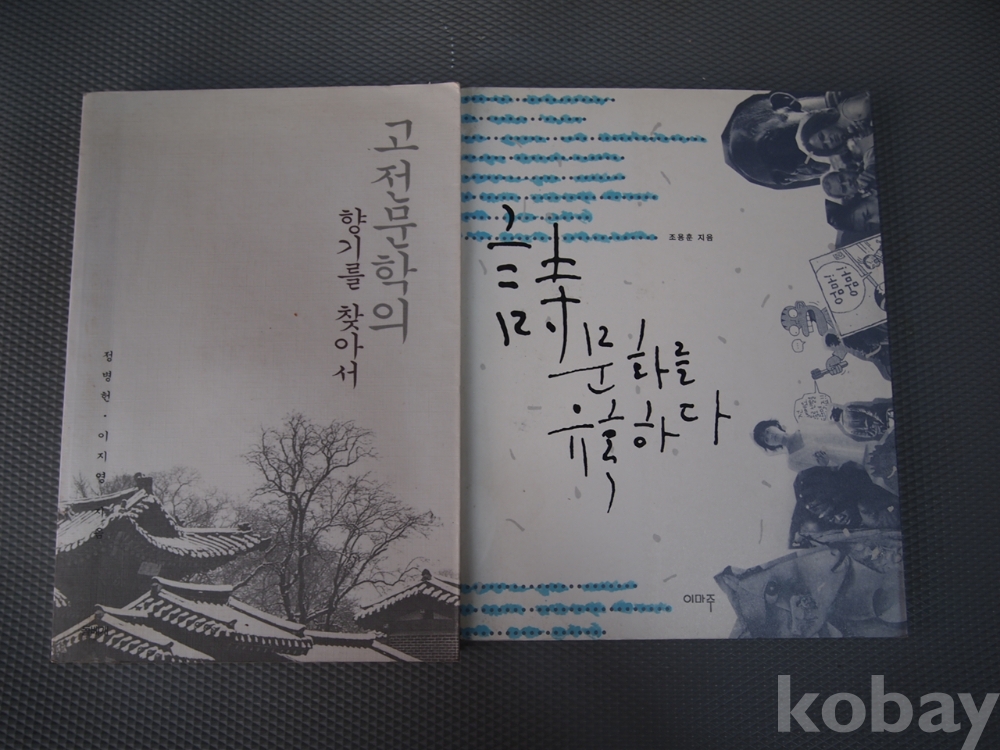 고전문학의
향기를 찾아서
정병헌·이지영 지음
조용훈 지음
詩
문화를
유혹하다
이마주
kobay